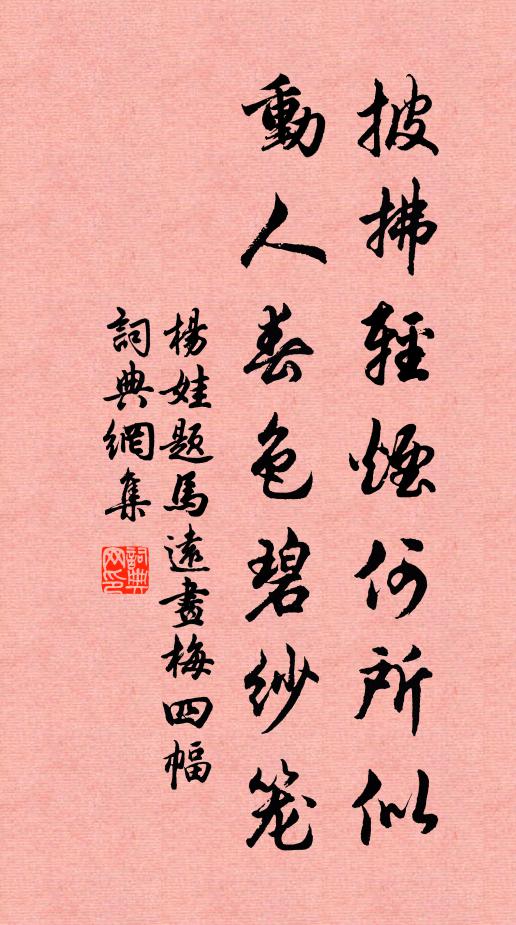 披拂輕煙何所似
動人春色碧紗笼
楊娃題馬遠畫梅四幅
詞典網集
詞典网印